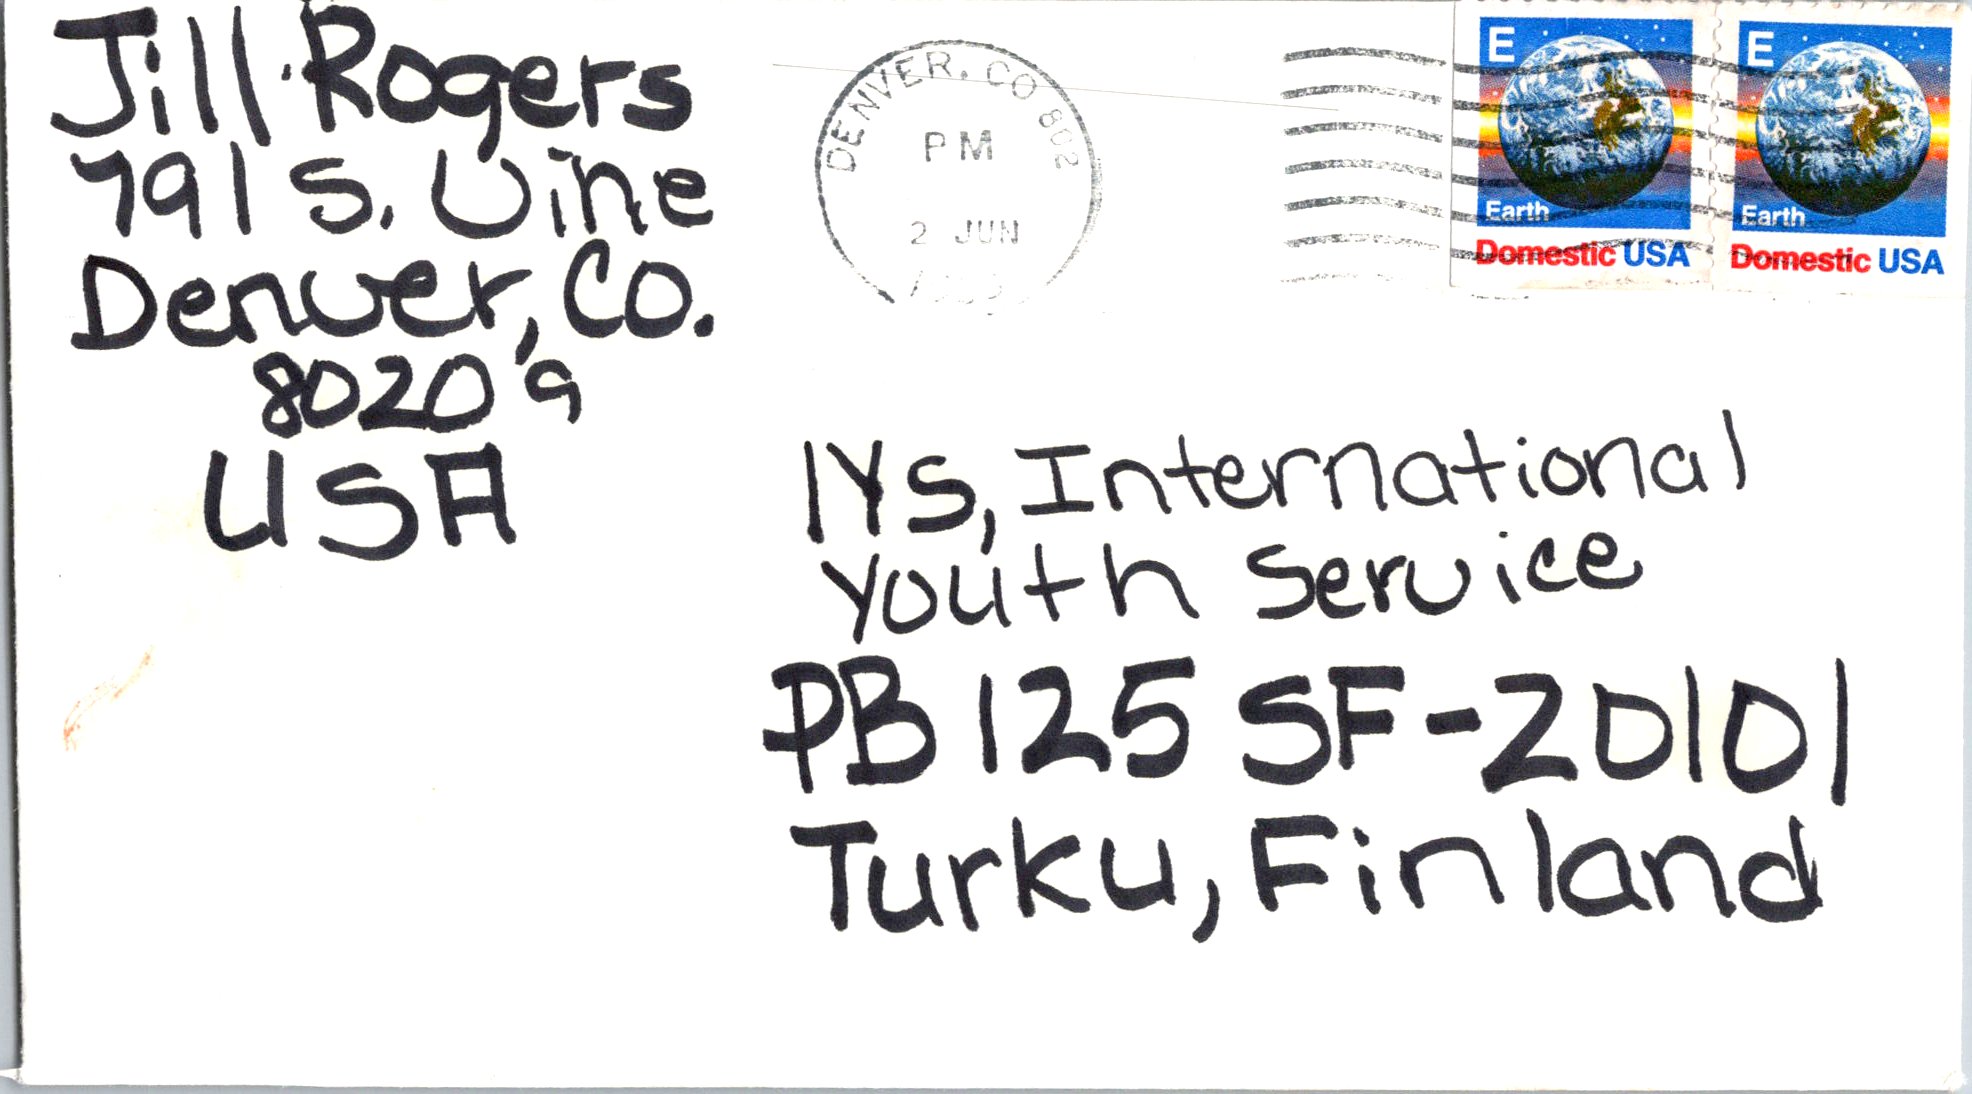 Jill Rogers
791 S. Vine
Denver, CO.
80209
USA
DENVER, CO 802
PM
2 JUN
E
Earth
Domestic USA
E
Earth
Domestic USA
IYS, International
Youth Service
PB 125 SF-20101
Turku, Finland